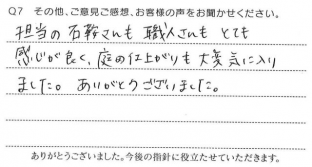 Q7 その他、ご意見ご感想、お客様の声をお聞かせください。
担当の石鞍さんも 職人さんも とても
感じが良く、庭の仕上がりも 大変気に入り
ました。 ありがとうございました。
ありがとうございました。今後の指針に役立たせていただきます。